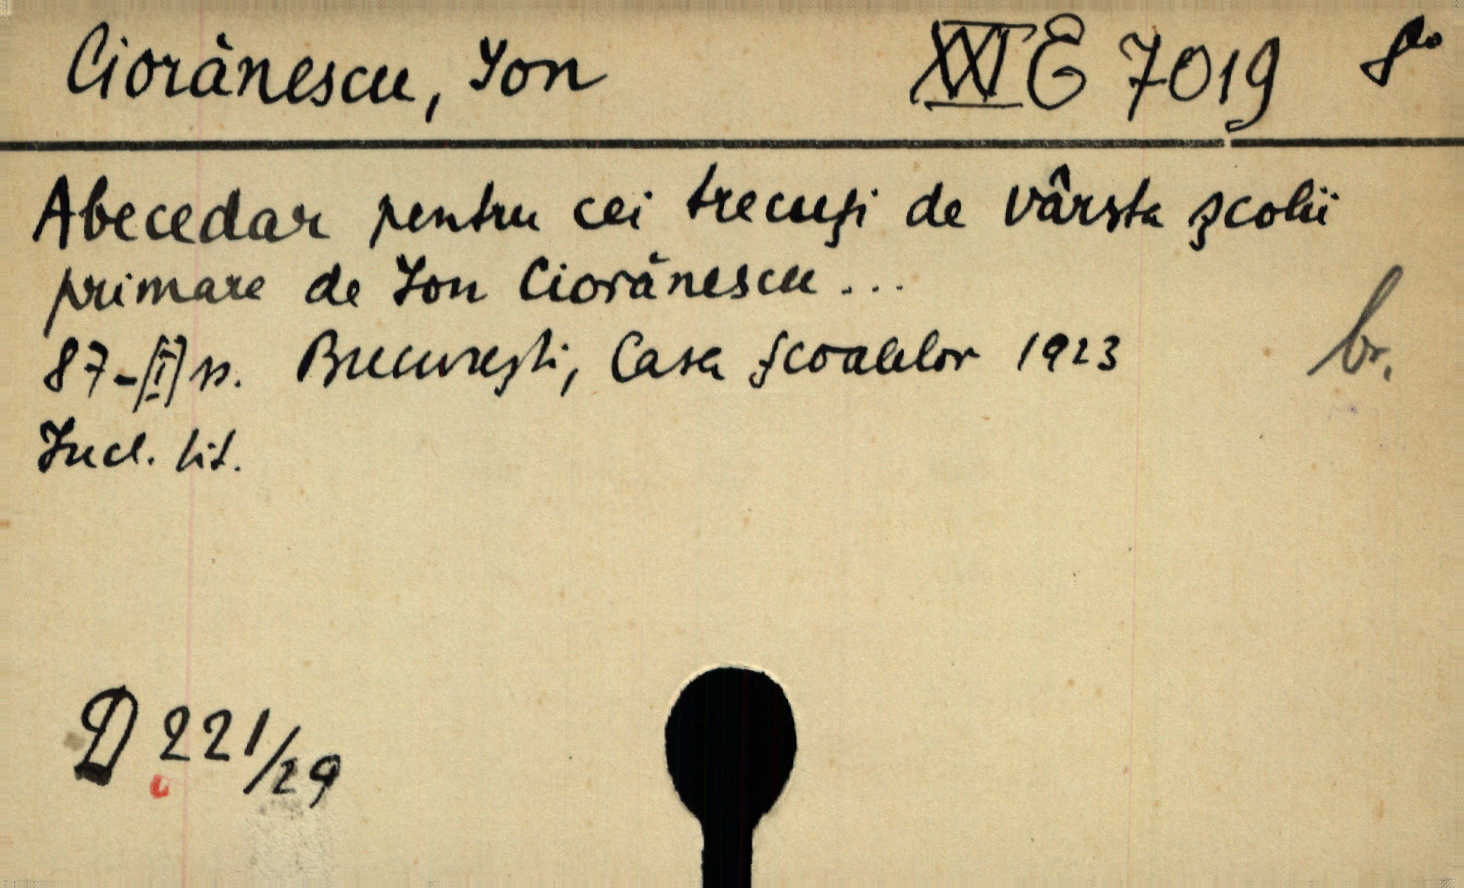 Ciorănescu, Ion XXI E 7019 8°
Abecedar pentru cei trecuţi de vârsta şcolii
primare de Ion Ciorănescu...
87-[I] p. Bucureşti, Casa Şcoalelor 1923
br.
Incl. tit.
D 221/29